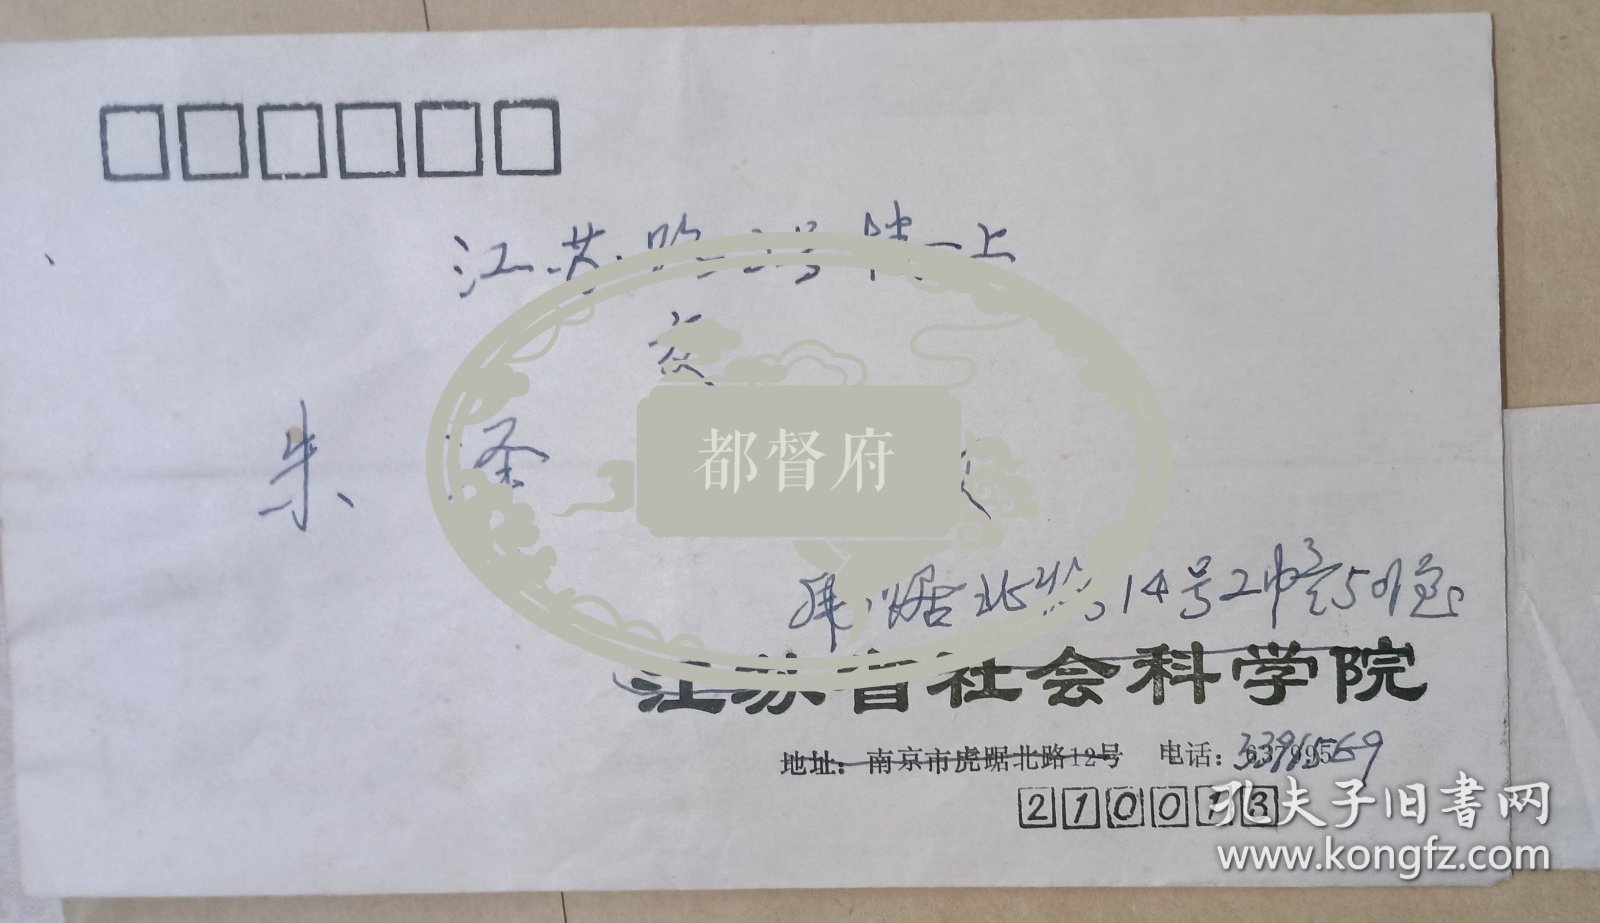 江苏路23号陆一上
交
朱 泽
都督府
虎踞北路14号2幢501室
江苏省社会科学院
地址：南京市虎踞北路12号 电话：3391569
210013
孔夫子旧书网
www.kongfz.com